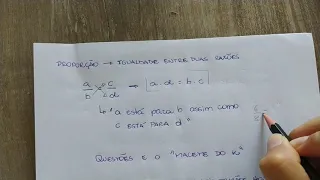 PROPORÇÃO → IGUALDADE ENTRE DUAS RAZÕES
a/b = c/d → |a.d = b.c|
↳ "a está para b assim como
c está para d"
QUESTÕES E O "MACETE DO K"